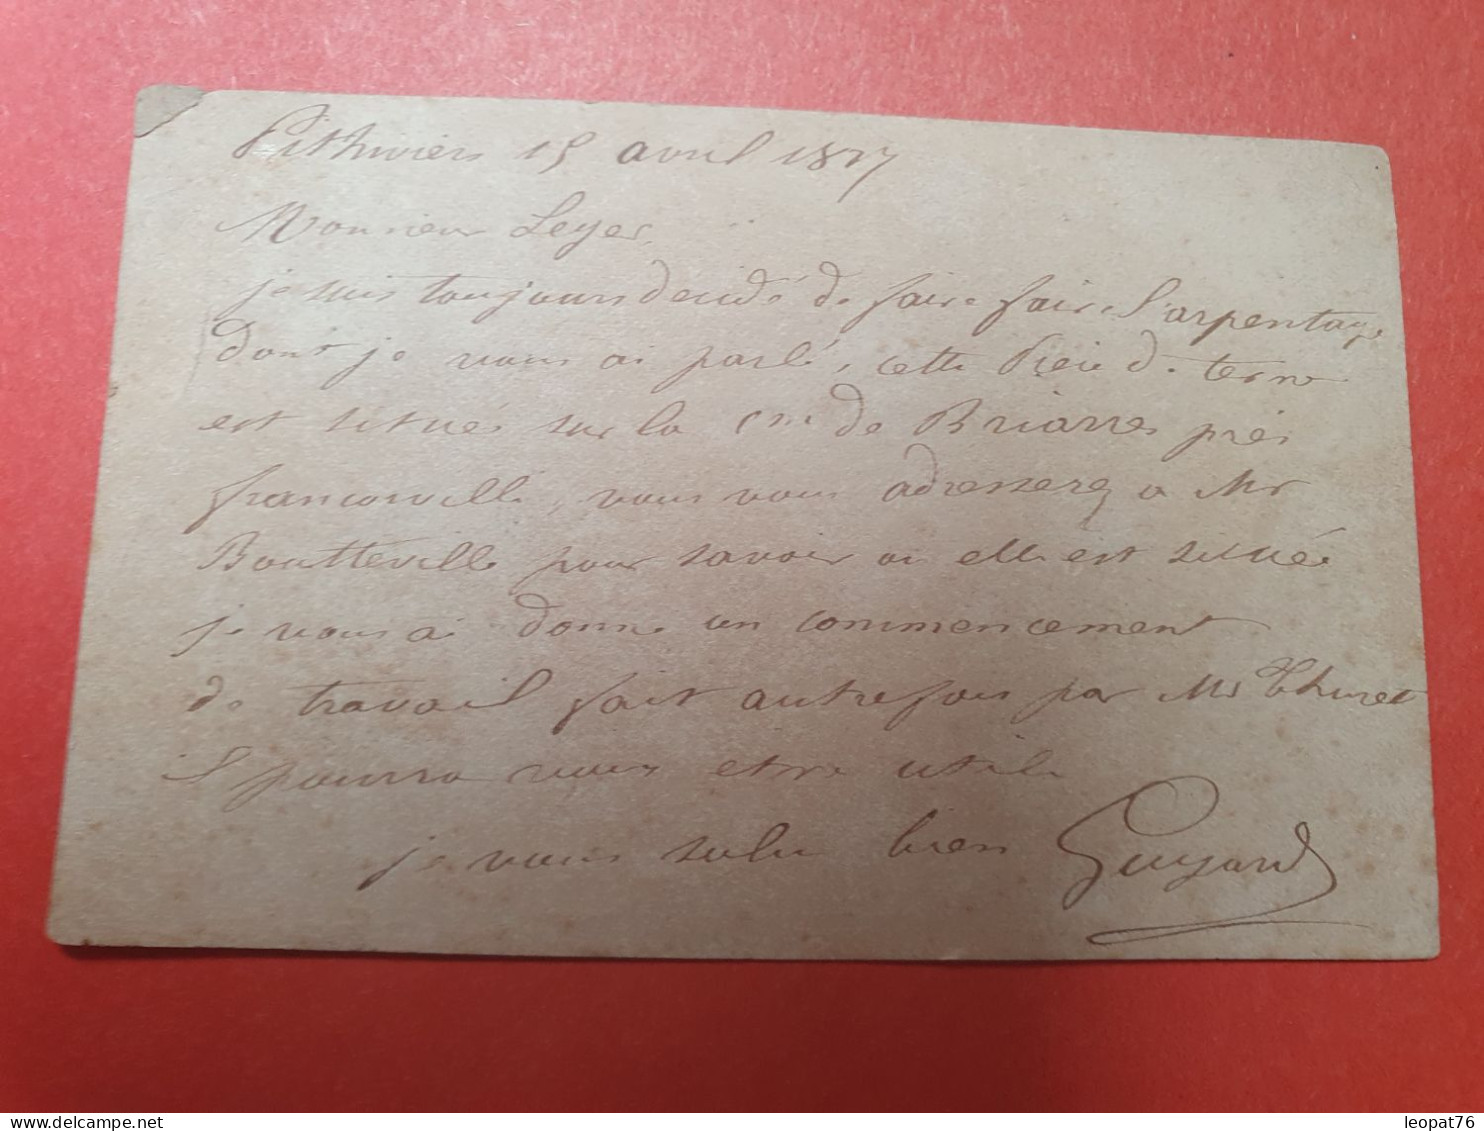 Pithiviers 15 avril 1877
Monsieur Leyer,
je suis toujours decidé de faire faire l'arpentage
dont je vous ai parlé, cette Pieie de terre
est situé sur la Cne de Briarres près
francorville, vous vous adresserez a Mr
Boutteville pour savoir ou elle est situé
je vous ai donne un commencement
de travail fait autrefois par Mr Thuret
il pourra vous etre utile
je vous salue bien Guyard
leopat76
delcampe.net